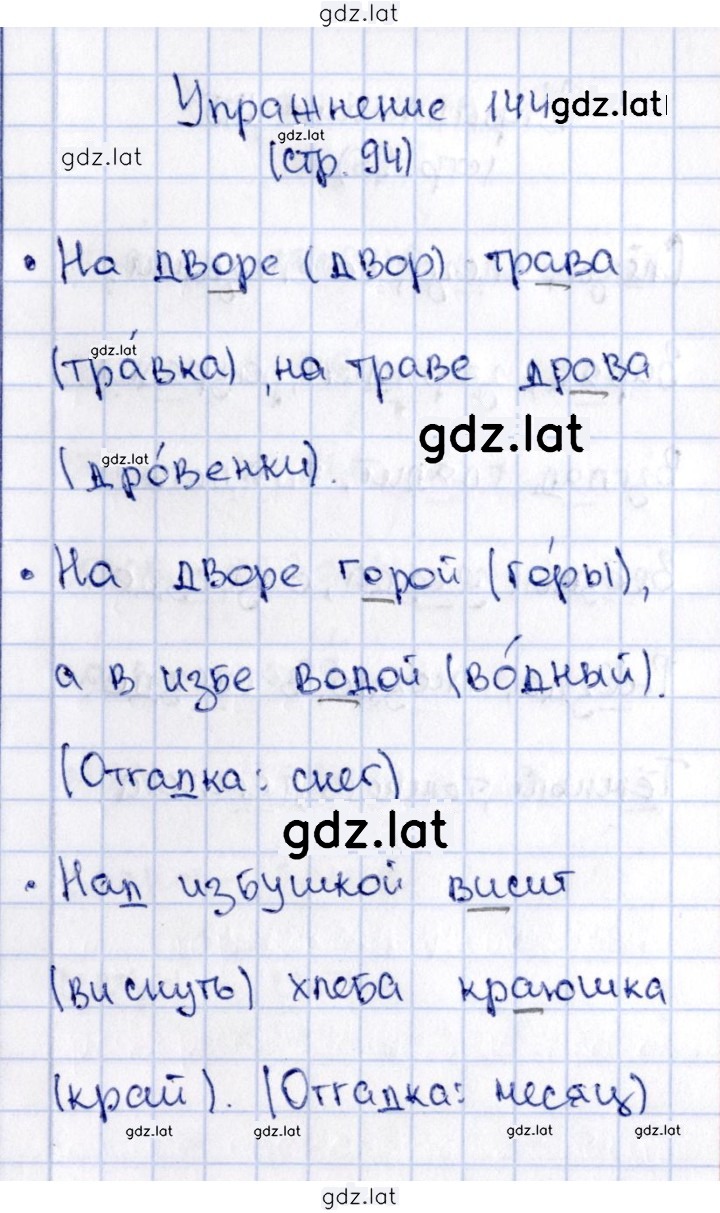 gdz.lat
Упражнение 144 gdz.lat
gdz.lat
gdz.lat (стр. 94)
• На дворе (двор) трава
gdz.lat
(тра́вка), на траве дрова
gdz.lat
gdz.lat
(дро́венки).
• На дворе горой (го́ры),
а в избе водой (во́дный).
(Отгадка: снег)
gdz.lat
• Нап избушкой висит
(вискуть) хлеба краюшка
(край). (Отгадка: месяц)
gdz.lat gdz.lat gdz.lat gdz.lat
gdz.lat